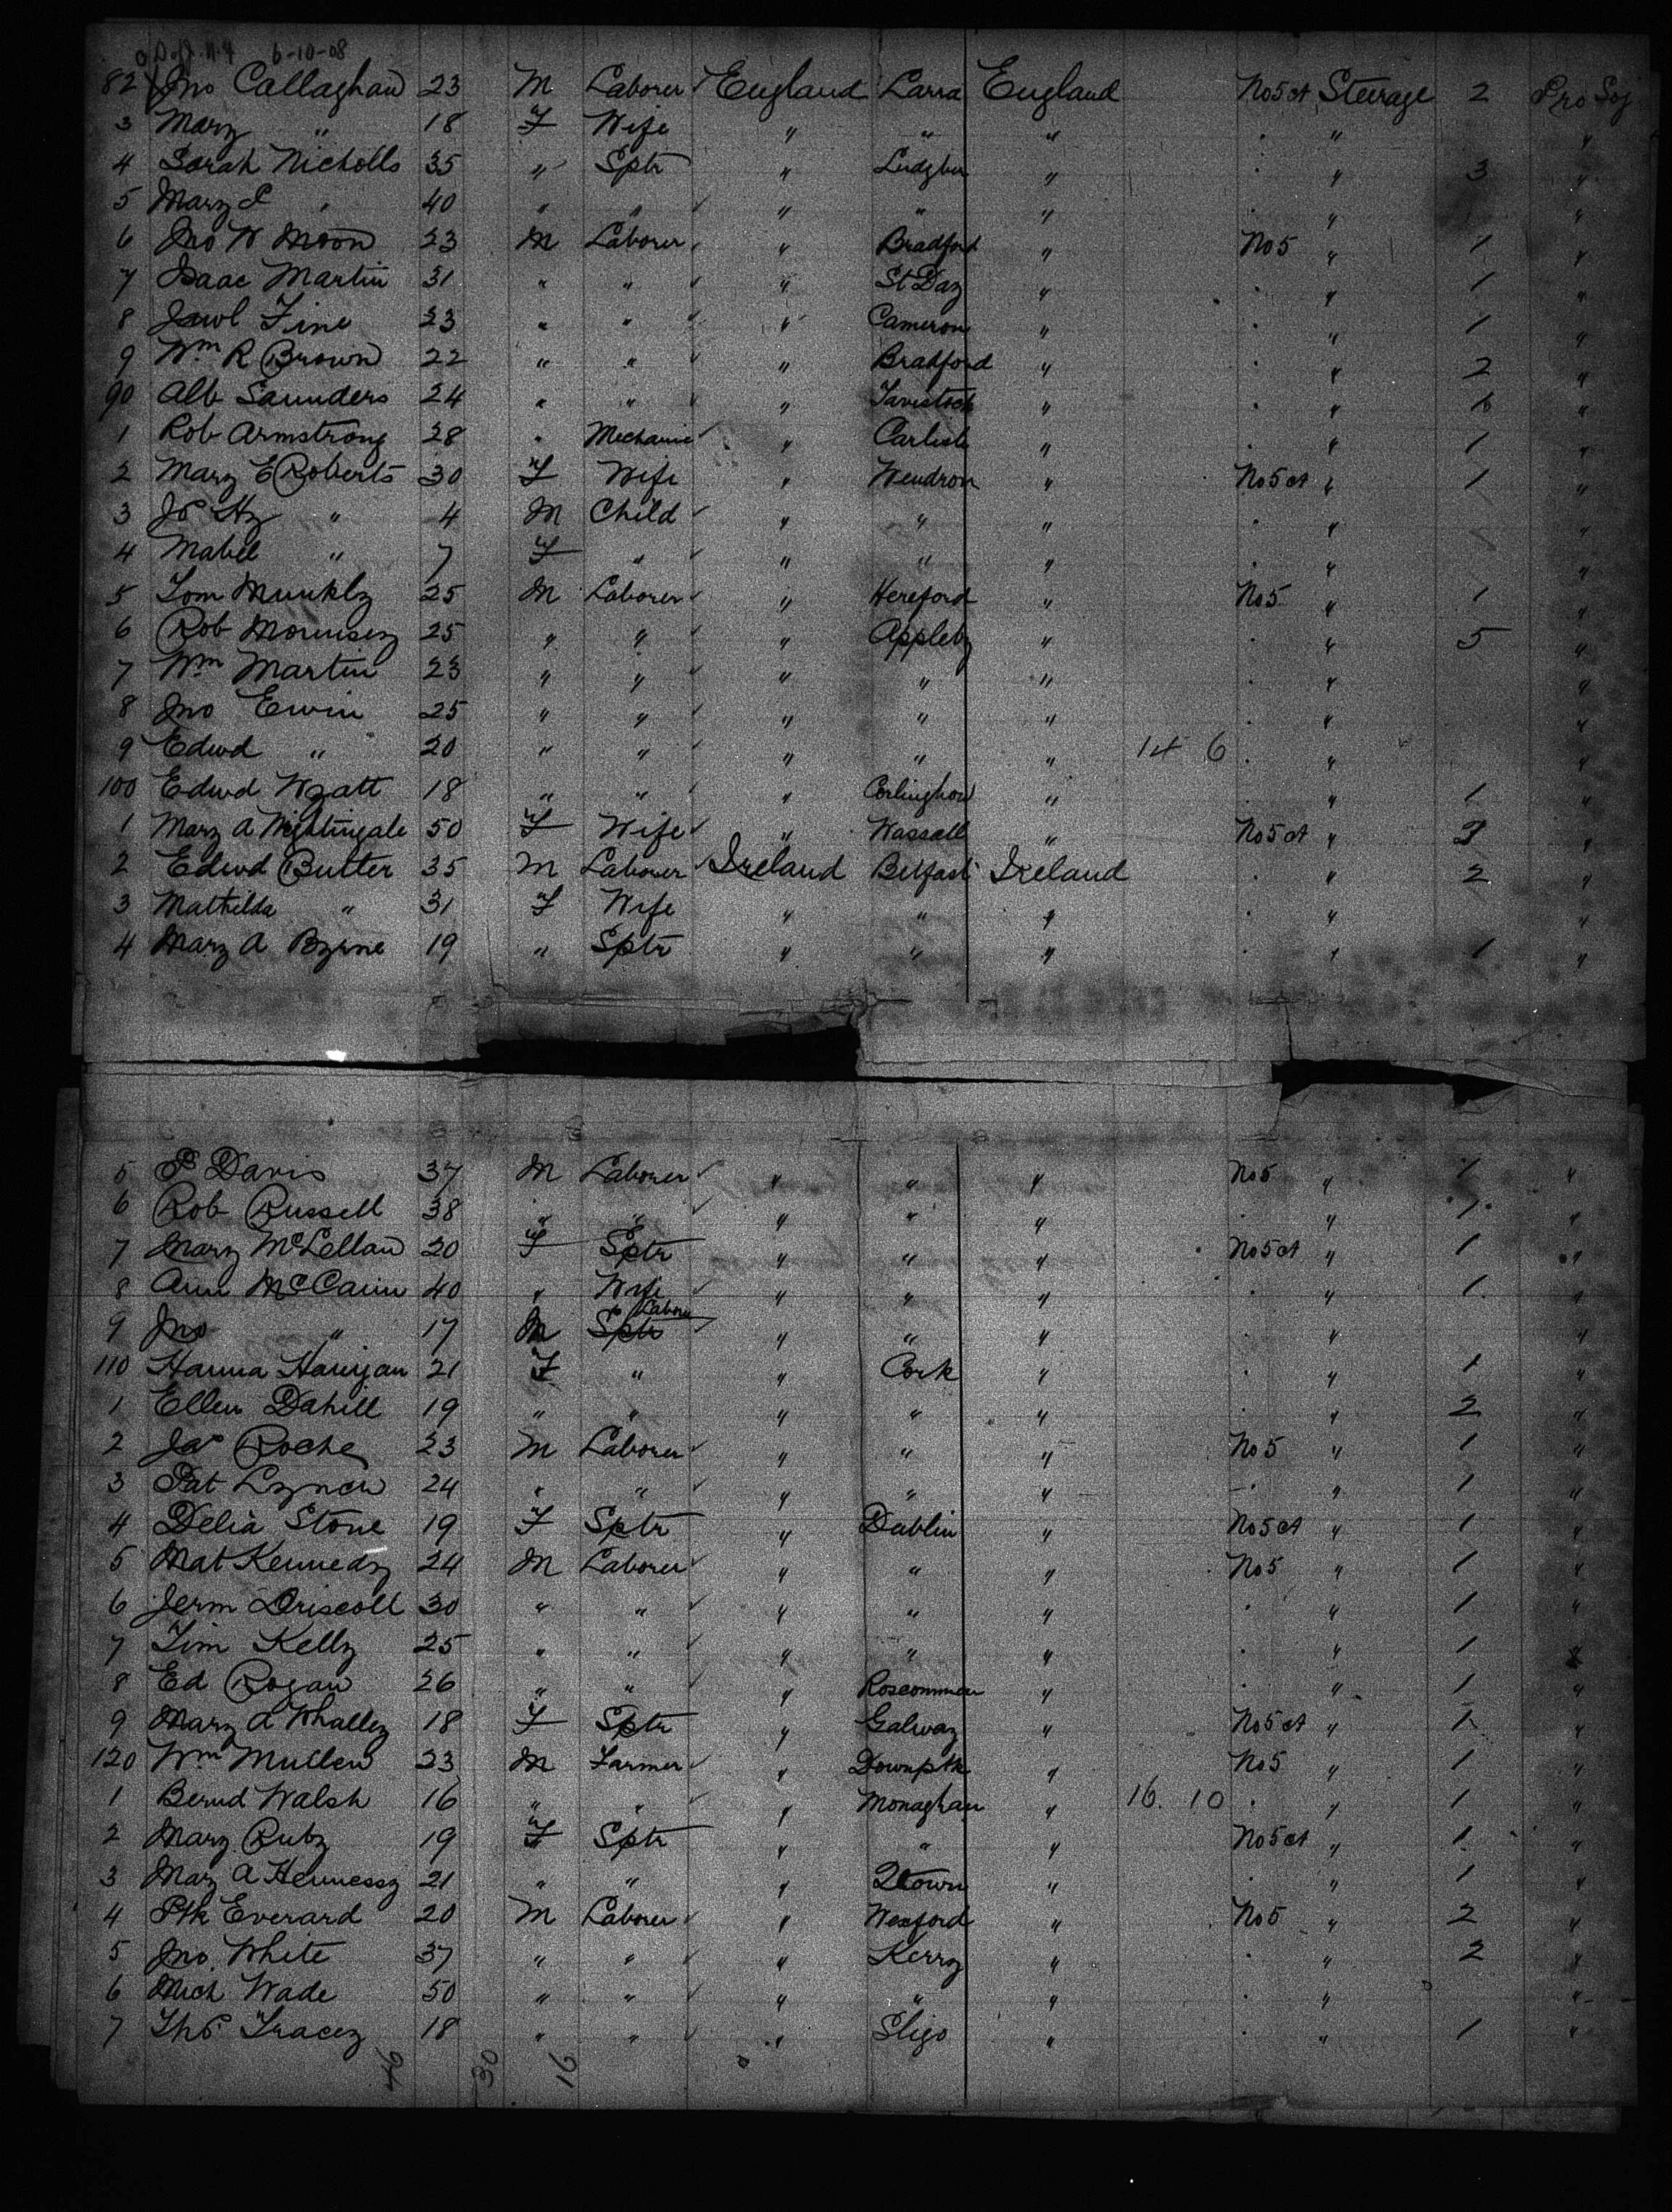 6-10-08
82 Jno Callaghan 23 M Laborer England Larra England No 5 ct Steerage 2 Pro Soj
3 Mary " 18 F Wife " " " " "
4 Sarah Nicholls 35 " Sptr " " " 3 "
5 Mary " 40 " " " " " " "
6 Jno W Moon 23 M Laborer " Bradford " No 5 " 1 "
7 Isaac Martin 31 " " " St Day " " 1 "
8 Fine 23 " " " Cameron " " 1 "
9 Wm R Brown 22 " " " Bradford " " 2 "
90 Alb Saunders 24 " " " Tavistock " " "
1 Rob Armstrong 28 " Mechanic " Carlisle " " 1 "
2 Mary E Roberts 30 F Wife " Wendron " No 5 ct " 1 "
3 Js Hy " 4 M Child " " " " "
4 Mabel " 7 F " " " " " "
5 Tom Munkly 25 M Laborer " Hereford " No 5 " 1 "
6 Rob 25 " " " Appleby " " 5 "
7 Wm Martin 23 " " " " " " "
8 Jno Erwin 25 " " " " " " "
9 Edwd " 20 " " " " " 14 6 " "
100 Edwd Wyatt 18 " " " " " 1 "
1 Mary A Nightingale 50 F Wife " Wassall " No 5 ct " "
2 Edwd Butter 35 M Laborer Ireland Belfast Ireland " 2 "
3 Mathilda " 31 F Wife " " " " "
4 Mary A Byrne 19 " Sptr " " " " 1 "
5 P Davis 37 M Laborer " " " No 5 " 1 "
6 Rob Russell 38 " " " " " " 1 "
7 Mary McLellan 20 F Sptr " " " No 5 ct " 1 "
8 Ann McCann 40 " Wife " " " " 1 "
9 Jno " 17 M Sptr Labour " " " " "
110 Hanna Harrigan 21 F " " Cork " " 1 "
1 Ellen Dahill 19 " " " " " " 2 "
2 Jas Roche 23 M Laborer " " " No 5 " 1 "
3 Pat Lynch 24 " " " " " " 1 "
4 Delia Stone 19 F Sptr " Dublin " No 5 ct " 1 "
5 Mat Kennedy 24 M Laborer " " " No 5 " 1 "
6 Jerm Driscoll 30 " " " " " " 1 "
7 Tim Kelly 25 " " " " " " 1 "
8 Ed Rogan 26 " " " Roscommon " " 1 "
9 Mary A Whalley 18 F Sptr " Galway " No 5 ct " 1 "
120 Wm Mullen 23 M Farmer " Downptk " No 5 " 1 "
1 Bernd Walsh 16 " " " Monaghan " 16. 10 " 1 "
2 Mary Ruby 19 F Sptr " " " No 5 ct " 1 "
3 May A Hennessy 21 " " " Qtown " " 1 "
4 Ptk Everard 20 M Laborer " Wexford " No 5 " 2 "
5 Jno. White 37 " " " Kerry " " 2 "
6 Mich Wade 50 " " " " " " "
7 Ths Tracey 18 " " " Sligo " " 1 "
46 30 16